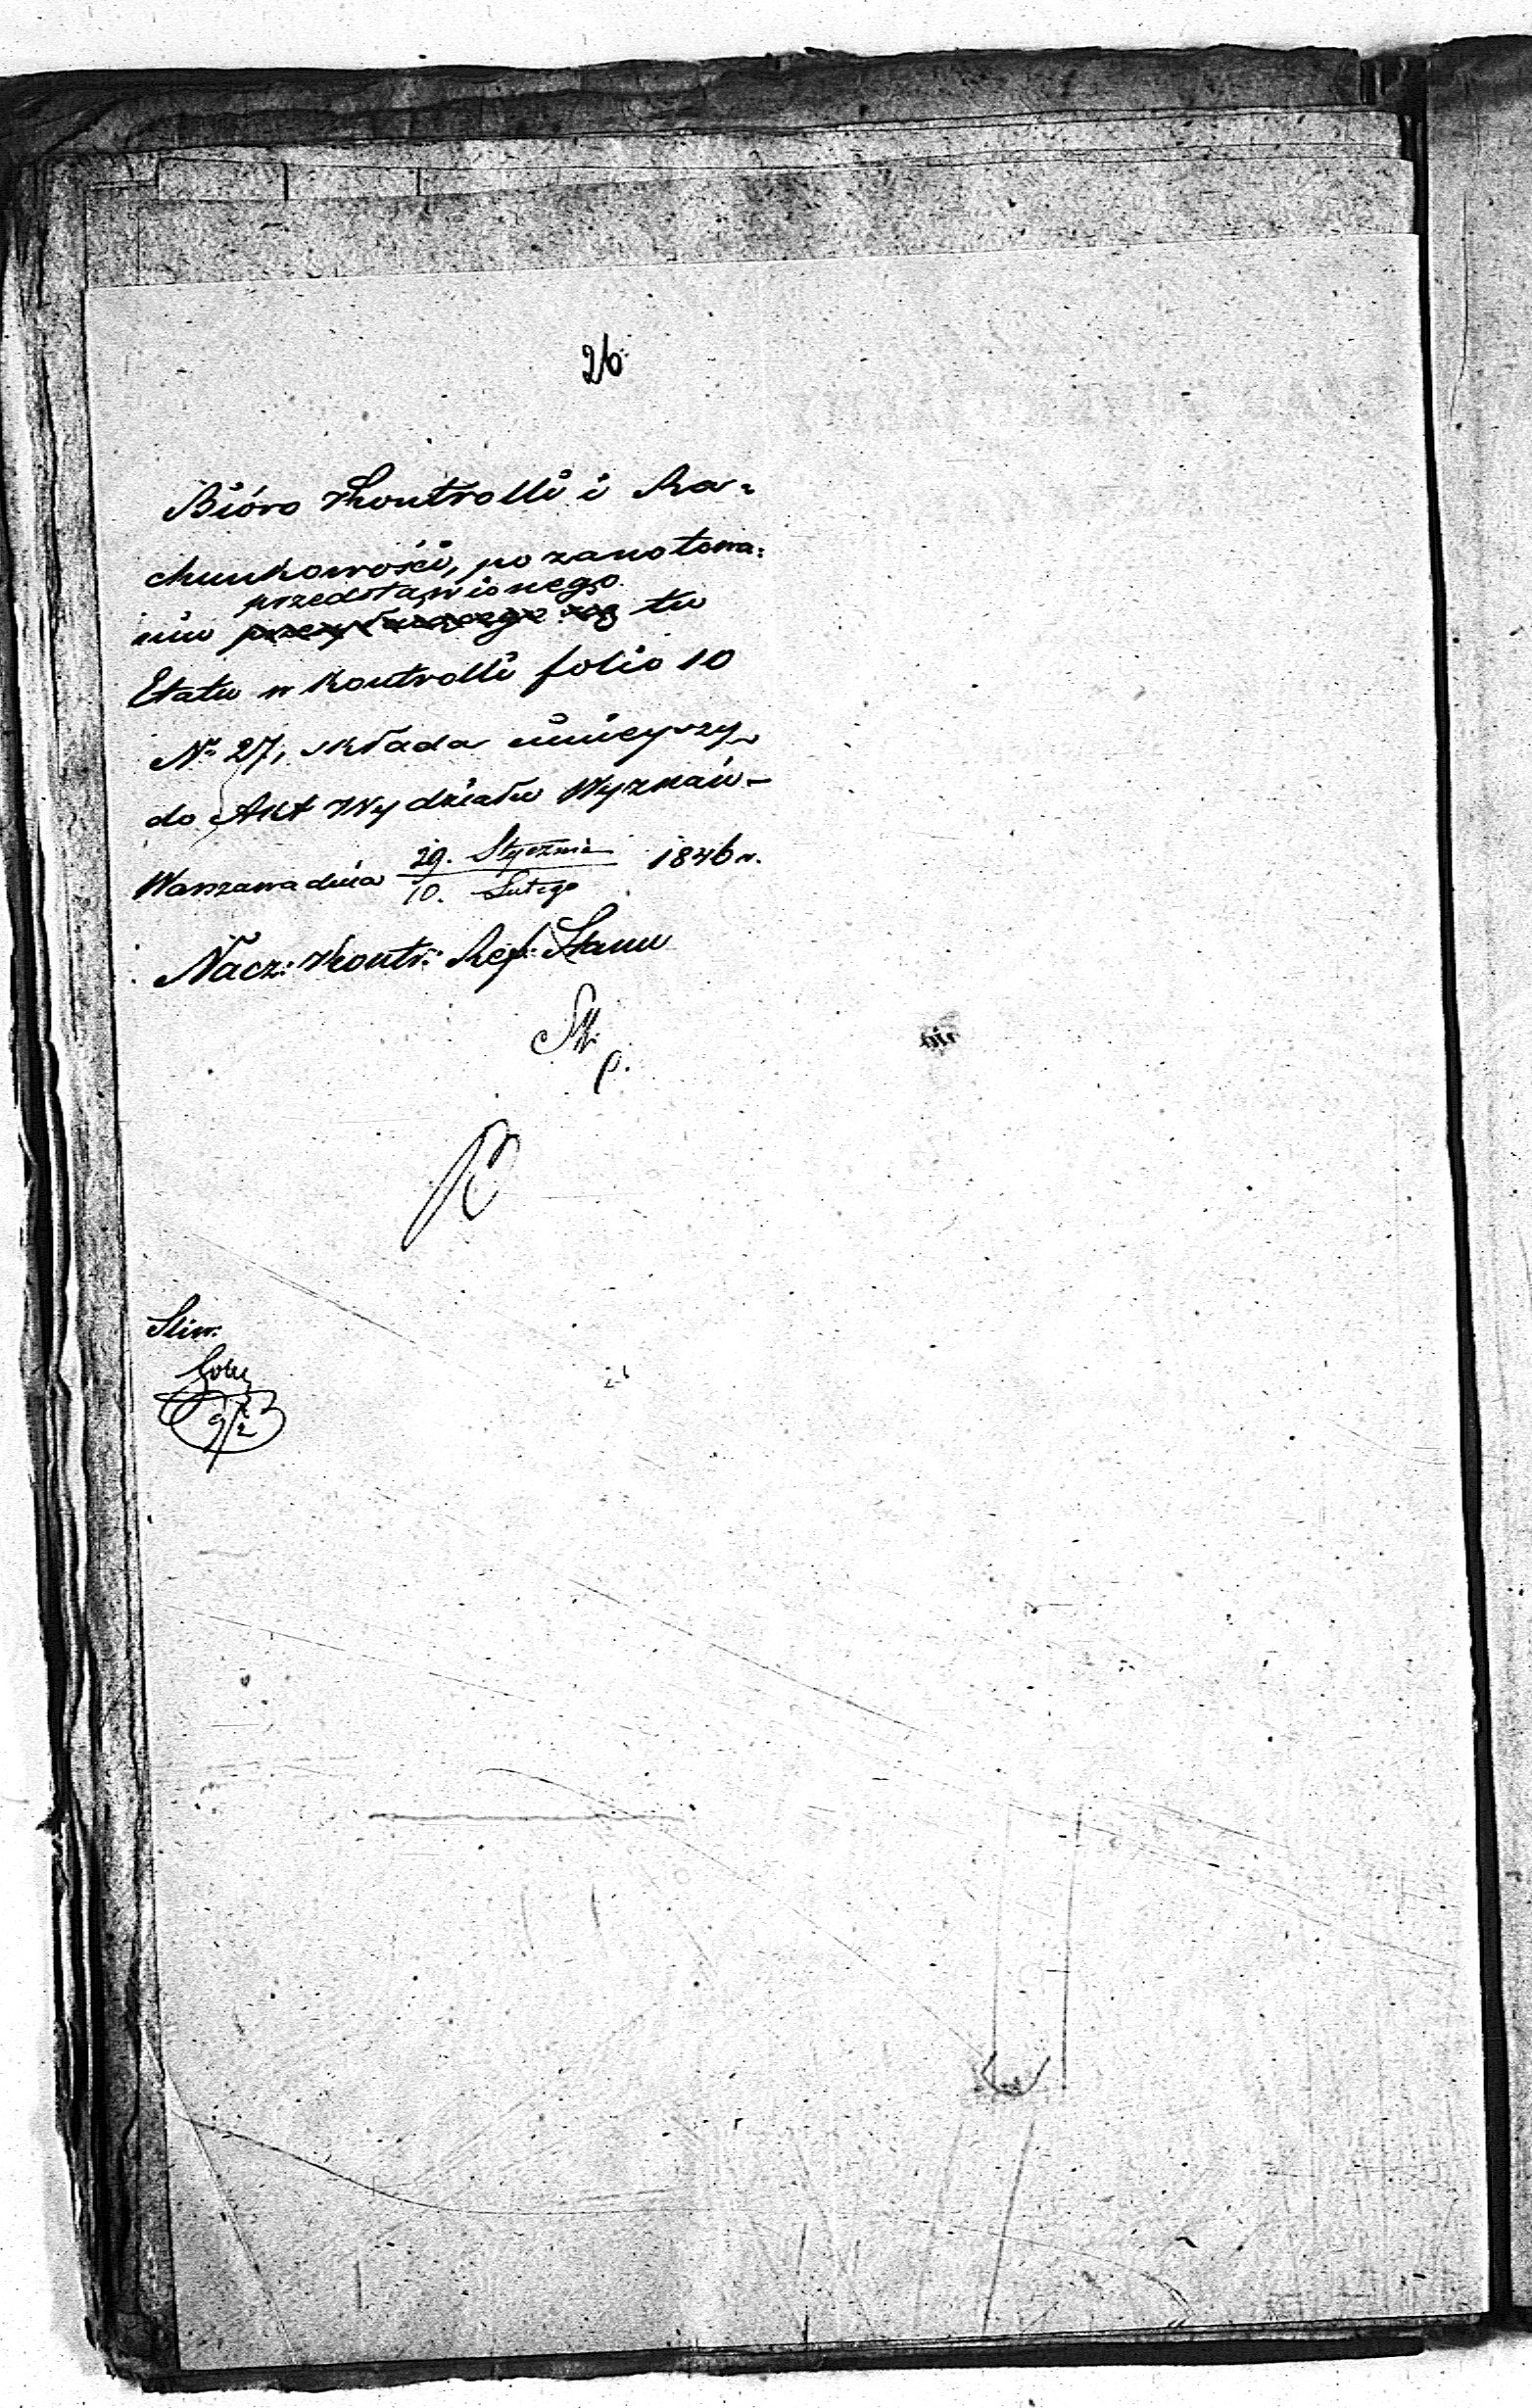 26
Bióro Kontrolli i Ra=
chunkowości, po zanotowa=
przedstawionego
niu tu
Etatu w Kontrolli folio 10
No 27, składa niniejszy
do Akt Wydziału Wyznań –
Warszawa dnia 29. Stycznia / 10. Lutego 1846 r.
Nacz: Kontr: Ref: Stanu
Sliw:
9/2